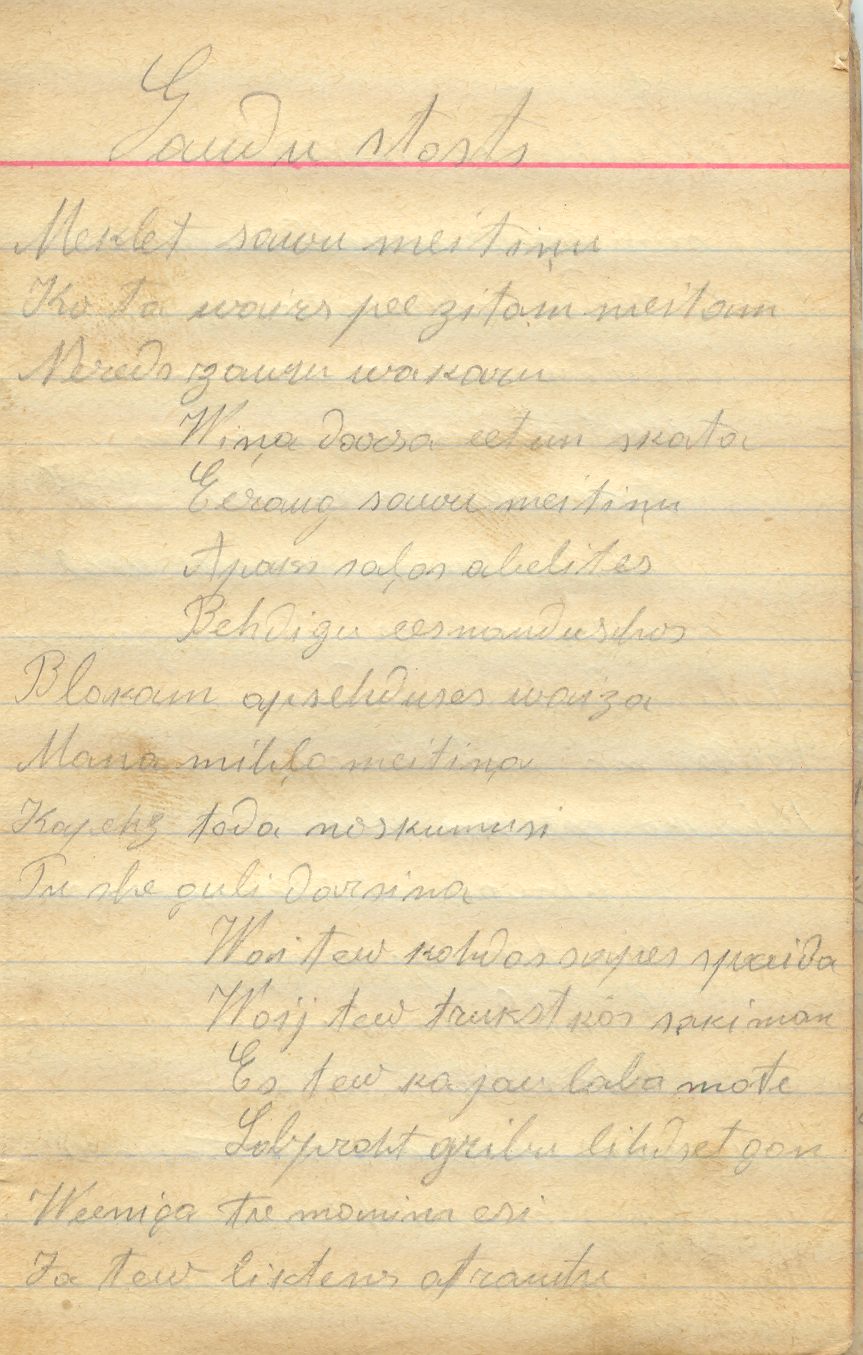 Gaudu stasts
Meklet sawu meitiņu
Ko ta wairs pee zitām meitam
Nereds zauru wakaru
Wiņa dodas eet un skata
Eeraug sawu meitiņu
Apaksh saļas abelites
Behdigu eesnaudushos
Blakam apsehduses waiza
Mana mihļa meitiņa
Kapehz tada noskumusi
Tu she guli darsiņa
Wai tew kahdas sapes speida
Waij tew trukst kas saki man
Es tew ka jau laba mate
Labpraht gribu lihdset gan
Weeniga tu mamiņu esi
Ja tew liktens atrautu